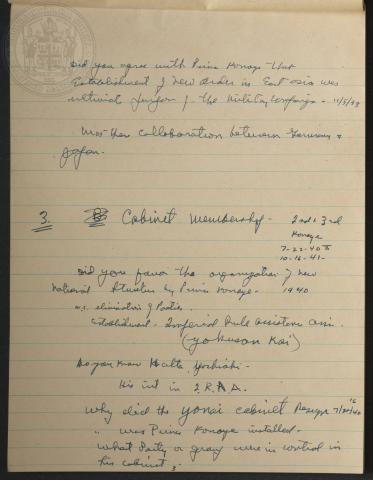 Did you agree with Prince Konoye that
Establishment of New Order in East Asia was
ultimate purpose of the Military Campaign - 11/3/38
Was there collaboration between Germany &
Japan.
3. Cabinet Membership - 2nd & 3rd
Konoye
7-22-40 to
10-16-41-
Did you favor the organization of new
National Structure by Prince Konoye - 1940
elimination of Parties.
Establishment - Imperial Rule Assistance Assn.
(Yokusan Kai)
Do you know Hoshiki-
His int in I.R.A.A.
Why did the Yonai Cabinet Resign 7/16/40
" was Prince Konoye installed-
What Party or group were in control in
his cabinet,